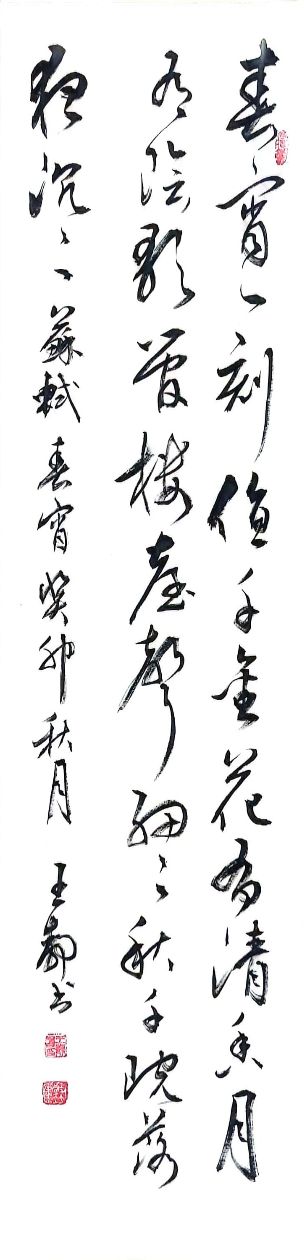 春宵一刻值千金花有清香月
有陰歌管樓臺聲細〻秋千院落
夜沉〻蘇軾春宵癸卯秋月 王书